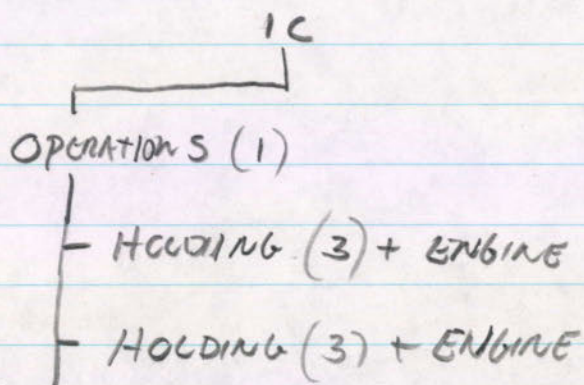 IC
OPERATIONS (1)
- HOLDING (3) + ENGINE
- HOLDING (3) + ENGINE